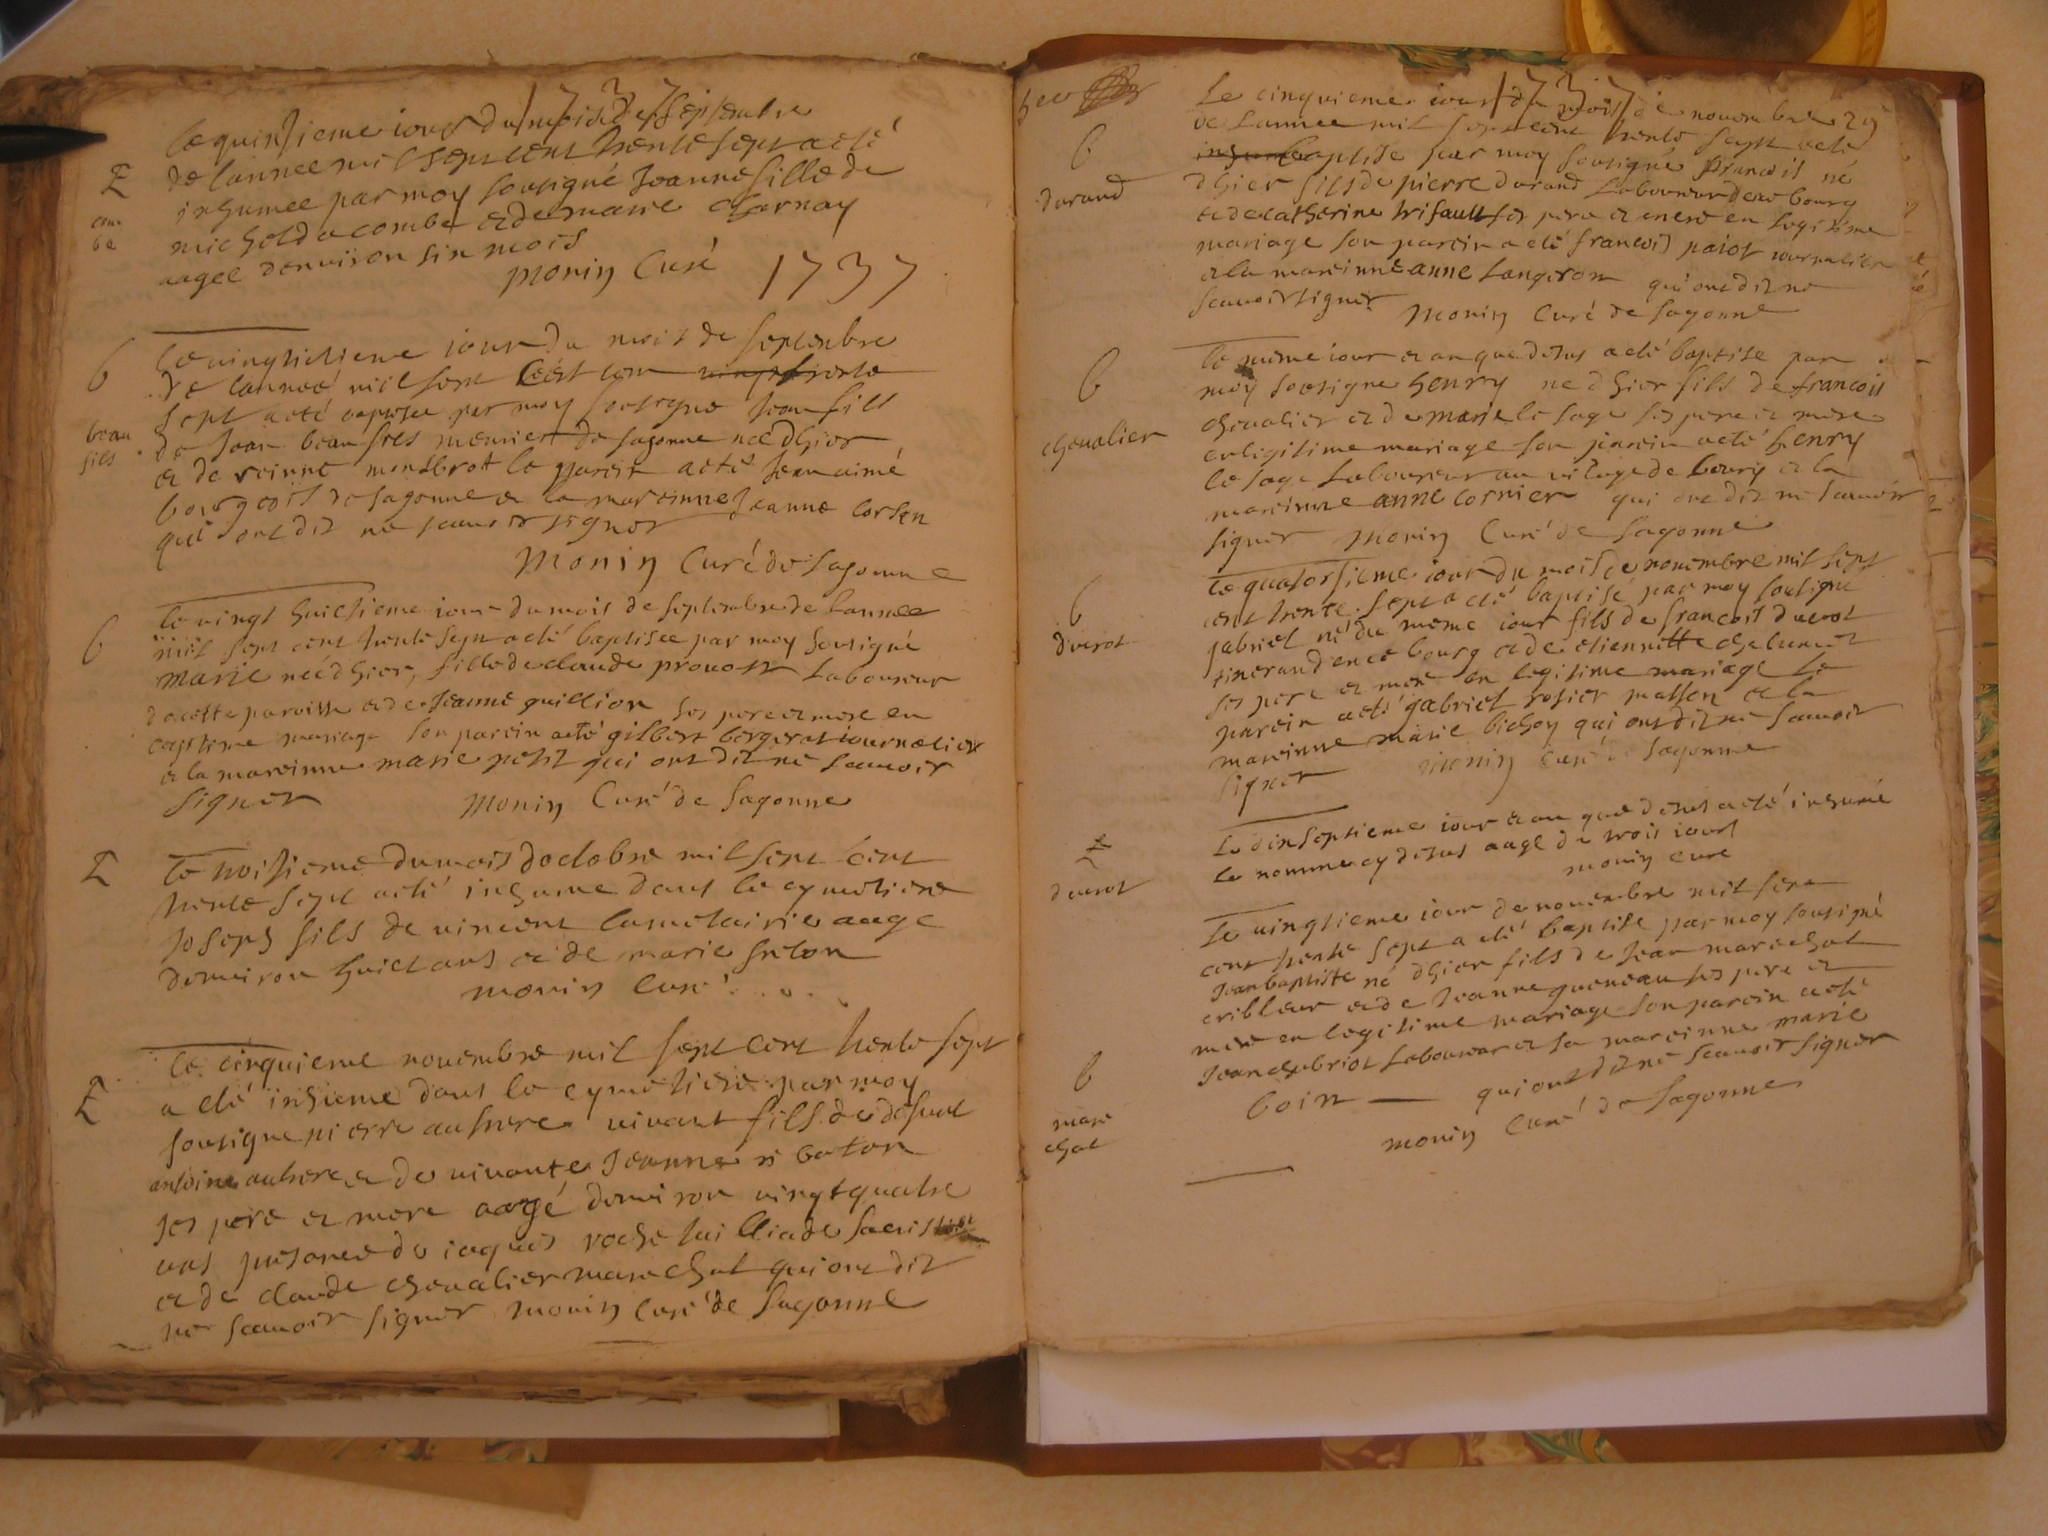 1737
Le quinsieme iour du mois de septembre
de lannee mil sept cent trente sept a eté
E
inhumee par moy sousigné Jeanne fille de
com
be
michel de combe et de marie charnay
aagee denviron six mois
monin Curé 1737
Le vingtieme iour du mois de septembre
b
de lanneé mil sept cent
sept a eté baptisee par moy sousigne Jean fils
beau
fils
de Jean beaufils meunier de sagonne né dhier
et de reinne montbrott le parein a eté Jean aimé
bourgeois de sagonne et la mareinne Jeanne
qui ont dit ne scauoir signer
Monin Curé de Sagonne
Le vingt huictieme iour du mois de septembre de lannee
mil sept cent trente sept a eté baptisee par moy sousigné
b
marie neé dhier, fille de claude prouost Laboureur
de cette paroisse et de Jeanne guillion ses pere et mere en
mariage son parein a eté gilbert bergerat iournalier
et la mareinne marie petit qui ont dit ne scauoir
signer Monin Curé de Sagonne
E
Le troisieme du mois doctobre mil sept cent
trente sept a eté inhume dans le cymetiere
Joseph fils de vincent lametairie aage
denviron huict ans et de marie
monin Curé
Le cinquieme novembre mil sept cent trente sept
E
a eté inhume dans le cymetiere par moy
sousigne pierre auhere vivant fils de defunt
antoine auhere et de vivante Jeanne
ses pere et mere aagé denviron vingt quatre
ans presence de iaques roche
et de claude chevalier marechal qui ont dit
ne scauoir signer monin Curé de Sagonne
1737
Le cinquieme iour du mois de novembre
29
de Lannee mil sept cent trente sept a eté
b
baptise par moy sousigné francois né
durand
dhier fils de pierre durand Laboureur de ce bourg
et de catherine trifault ses pere et mere en legitime
mariage son parein a eté francois paiot iournalier
et la mareinne anne Langeron qui ont dit ne
scauoir signer Monin Curé de Sagonne
Le meme iour et an que desus a eté baptise par
b
moy sousigne henry né dhier fils de francois
chevalier
chevalier et de marie le sage ses pere et mere
en legitime mariage son parein a eté henry
le sage Laboureur au vilage de boury et la
mareinne anne cornier qui ont dit ne scauoir
signer Monin Curé de Sagonne
Le quatorsieme iour du mois de novembre mil sept
b
cent trente sept a eté baptisé par moy sousigné
duerot
gabriel né du meme iour fils de francois duerot
tinerand en ce bourg et de etiennette
ses pere et mere en legitime mariage le
parein a eté gabriel rosier masson et la
mareinne marie bichon qui ont dit ne scauoir
signer monin Curé de Sagonne
E
Le dinseptieme iour et an que desus a eté inhumé
duerot
le nomme cy desus aagé de trois iours
monin curé
Le vingtieme iour de novembre mil sept
cent trente sept a eté baptise par moy sousigné
Jean baptiste né dhier fils de Jean marechal
cribleur et de Jeanne gueneau ses pere et
mere en legitime mariage son parein a eté
b
Jean chabriot Laboureur et sa mareinne marie
mare
chal
boin — qui ont dit ne scauoir signer
monin Curé de Sagonne